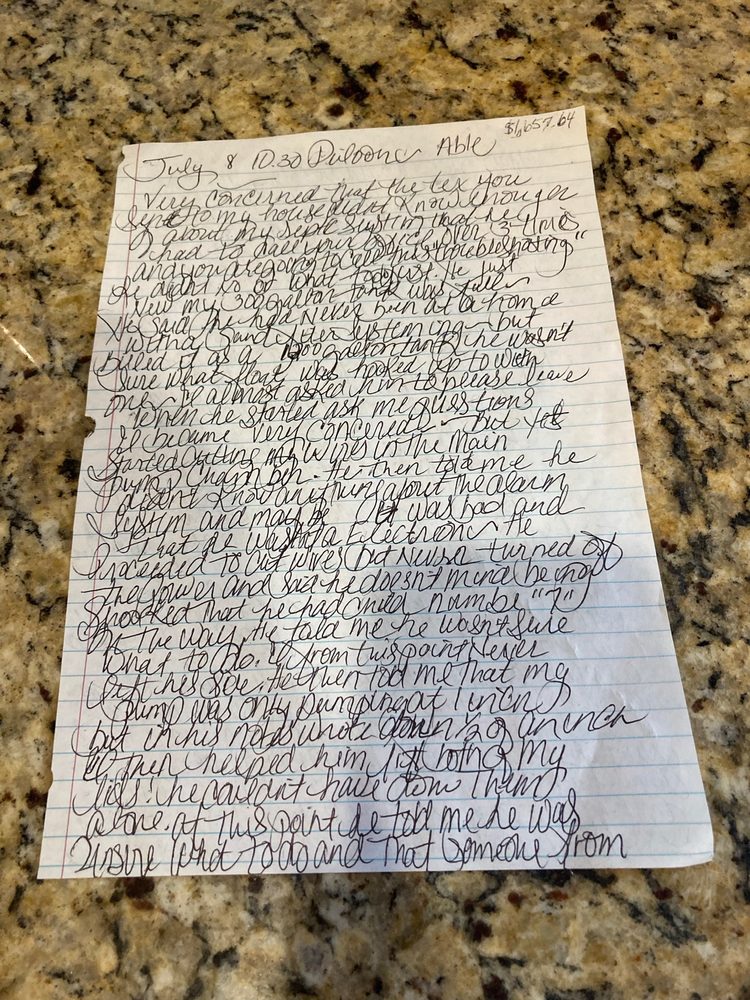 $1,657.64
July 8 10:30 Able
Very concerned that the tex you
send to my house didnt know enough
about my septic system that he
I had to call your office over 3 times
and you are going to call this troubleshooting"
He didnt of what to He just
New my 300 gallon tank was full
He said he had Never been at a home
with a Sand filter system ing but
billed it as a 1000 gallon tank he wasn't
sure what float was hooked up to wich
one I almost asked him to please leave
When he started ask me questions
I became very concerened but yet
Started Cutting my wires in the main
pump Chamber. He then told me he
doesnt know anything about the alarm
system and maybe it was bad and
that he was not a Electrion He
proceeded to cut wires but Never turned off
the power and said he doesn't mind being
shocked that he had child numbe "7"
on the way. He told me he wasnt sure
what to do. I from this point Never
left his side. He then told me that my
pump was only pumping at 1 inch
but in his notes wrote down 1/2 of an inch
I then helped him my
lids. he couldn't have done them
alone. at this point he told me he was
unsure what to do and that someone from